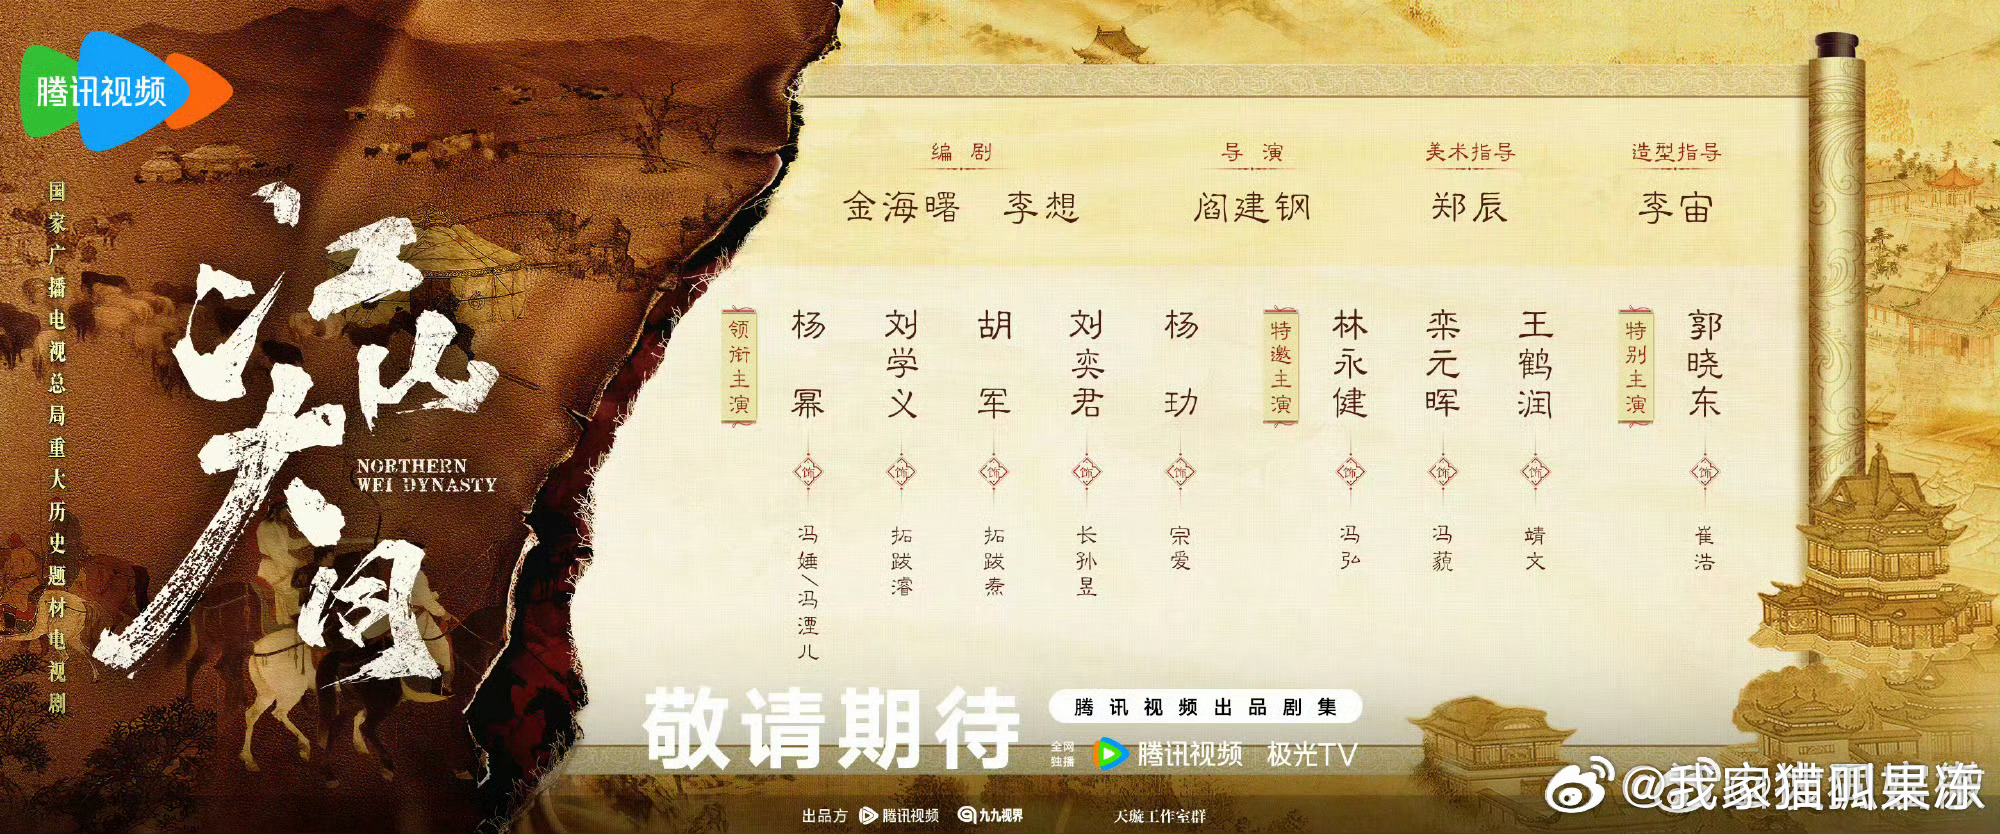 腾讯视频
国家广播电视总局重大历史题材电视剧
江山大同
NORTHERN
WEI DYNASTY
编剧
金海曙 李想
导演
阎建钢
美术指导
郑辰
造型指导
李宙
领衔主演
杨幂 饰 冯娷/冯湮儿
刘学义 饰 拓跋濬
胡军 饰 拓跋焘
刘奕君 饰 长孙昱
杨玏 饰 宗爱
特邀主演
林永健 饰 冯弘
栾元晖 饰 冯藐
王鹤润 饰 靖文
特别主演
郭晓东 饰 崔浩
敬请期待
腾讯视频出品剧集
全网独播 腾讯视频 极光TV
出品方 腾讯视频 九九视界 天璇工作室群